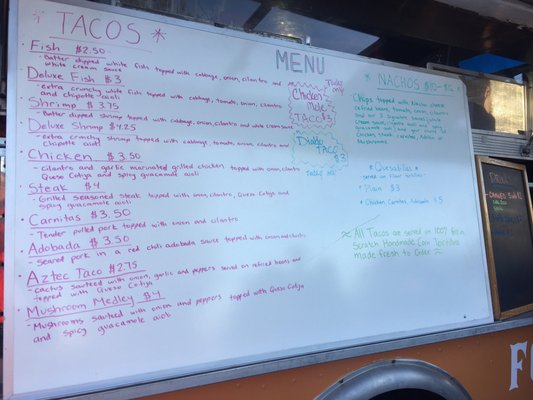 * TACOS *
Fish $2.50
- Batter dipped white fish topped with cabbage, onion, cilantro and
white cream sauce
Deluxe Fish $3
- extra crunchy white fish topped with cabbage, tomato, onion, cilantro
and chipotle aioli
Shrimp $3.75
- Batter dipped shrimp topped with cabbage, onion, cilantro and white cream sauce
Deluxe Shrimp $4.25
- Extra crunchy shrimp topped with cabbage, tomato, onion, cilantro and
chipotle aioli
Chicken $3.50
- cilantro and garlic marinated grilled chicken topped with onion, cilantro,
Queso Cotija and spicy guacamole aioli
Steak $4
- Grilled seasoned steak topped with onion, cilantro, Queso Cotija and
spicy guacamole aioli
Carnitas $3.50
- Tender pulled pork topped with onion and cilantro
Adobada $3.50
- Seared pork in a red chili adobada sauce topped with onion and cilantro
Aztec Taco $2.75
- cactus sauteed with onion, garlic and peppers served on refried beans and
topped with Queso Cotija
Mushroom Medley $4
- Mushrooms sauteed with onion and peppers topped with Queso Cotija
and spicy guacamole aioli
MENU
Today only!
Chicken
Mole
TACO $3
Diablo
TACO
$3
Today only
* NACHOS
Chips topped with Nacho cheese,
refried beans, tomato, onion, cilantro
and our 3 Signature Sauces
guacamole aioli and your choice of
Chicken, steak, carnitas, Adobada or
Mushrooms
* Quesadillas *
served on Flour tortillas
Plain $3
Chicken, Carnitas, Adobada $5
All Tacos are served on 100% from
Scratch Handmade Corn Tortillas
made Fresh to Order
FO